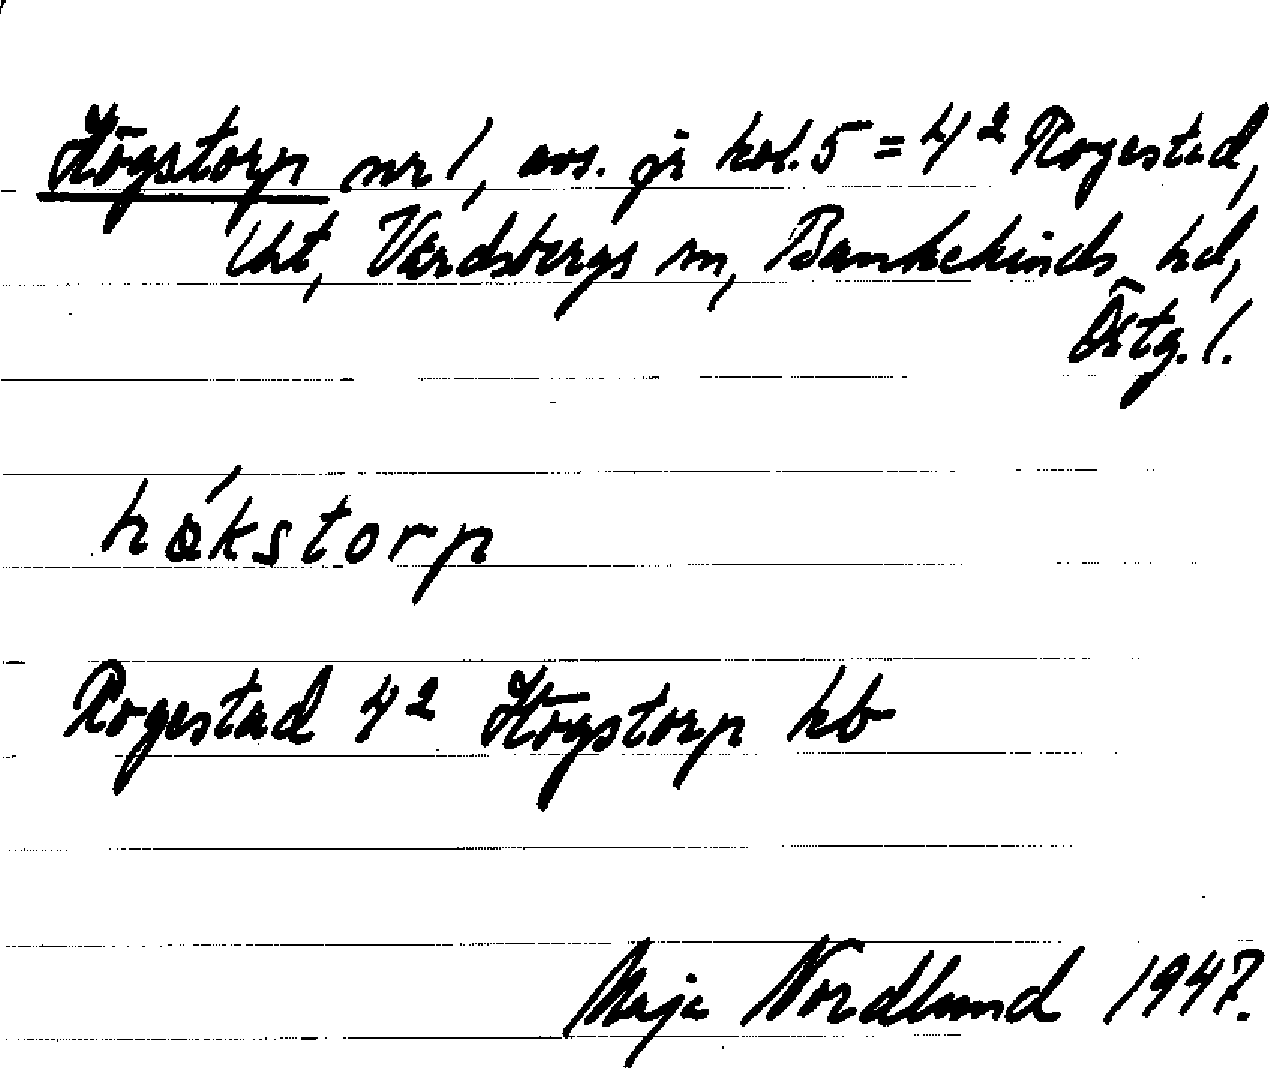 Högstorp nr 1, avs. på kol. 5 = 4² Rogestad,
Uht, Vårdsbergs sn, Bankekinds hd,
Östg. l.
hökstorp
Rogestad 4² Högstorp hb
Maja Nordlund 1947.